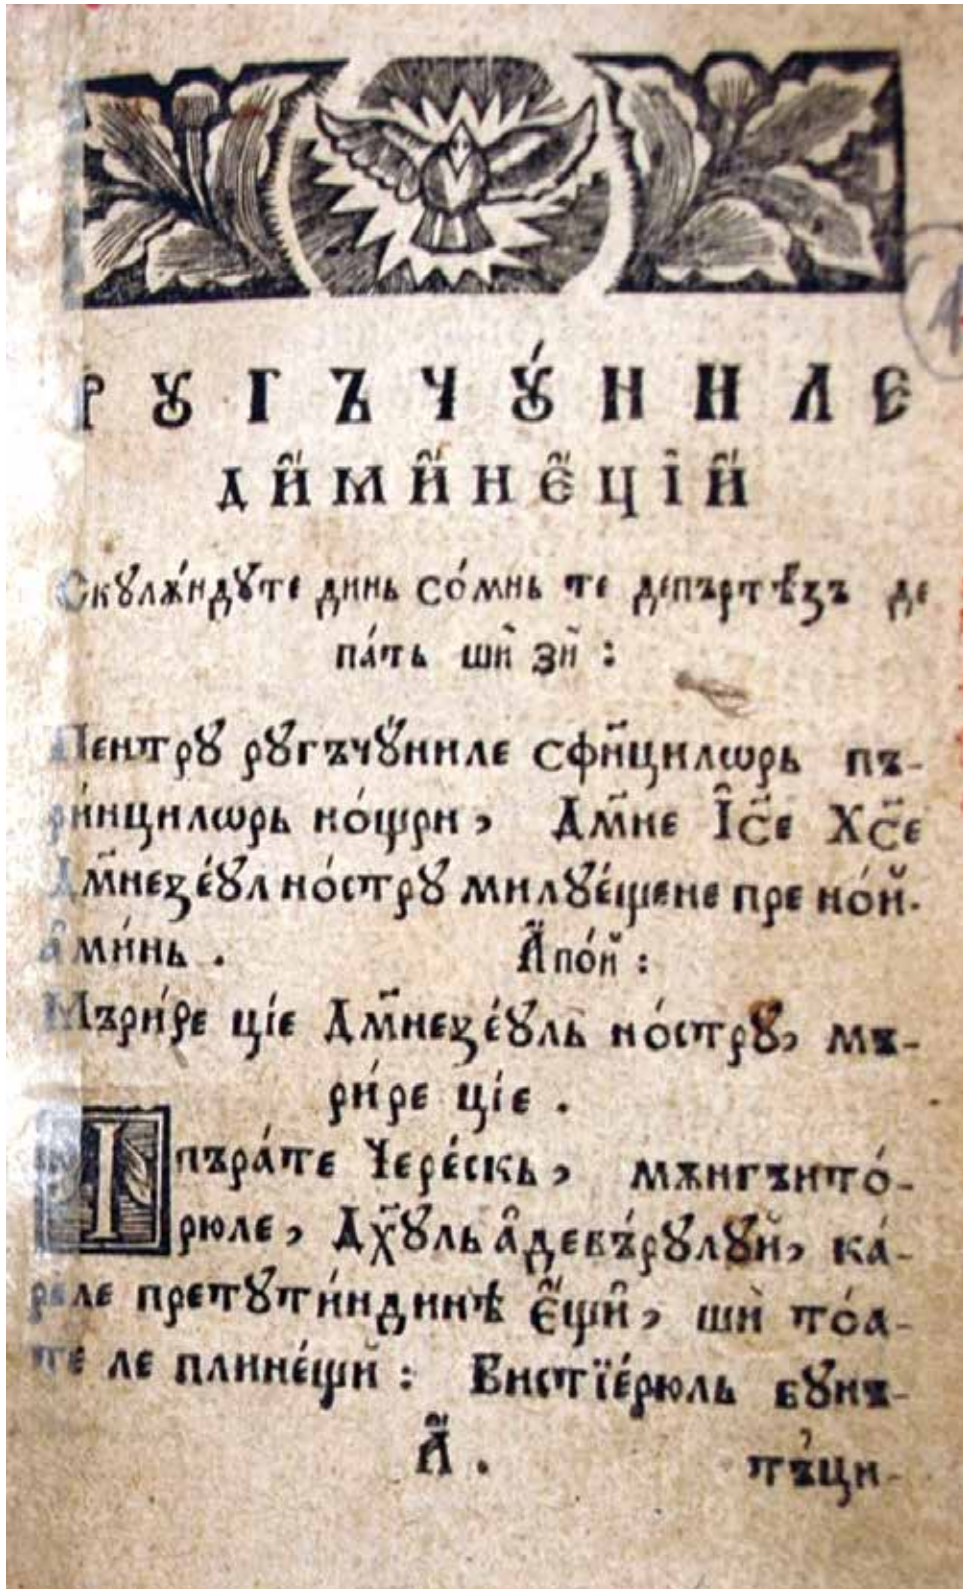 РꙋГЪЧꙋ́НИЛЕ
ДИ҆МИ҆НЕ҆ЦІИ҆
Скꙋлѫ́ндꙋте динь со́мнь те депъртѣ́зъ де
па́ть ши҆ зи҆ :
Пентрꙋ рꙋгъчꙋ́ниле сфи҆нцилѡрь пъ-
ри́нцилѡрь но́щри, Дм҃не І҆с҃е Хс҃е
Дм҃незе́ꙋл но́стрꙋ милꙋе́щене пре но́й.
а҆ми́нь . А҆по́й :
Мъри́ре ціе Дм҃незе́ꙋль но́стрꙋ, мъ-
ри́ре ціе .
І
пъра́те Чере́скь, мѫнгъито́-
рюле, Дх҃ꙋль а҆девъ́рꙋлꙋй, ка́-
реле претꙋти́ндинѣ є҆щи҆, ши҆ то́а-
те ле плине́щи҆ : Вистїе́рюль бꙋнъ-
А҃ . тъ́ци-
1